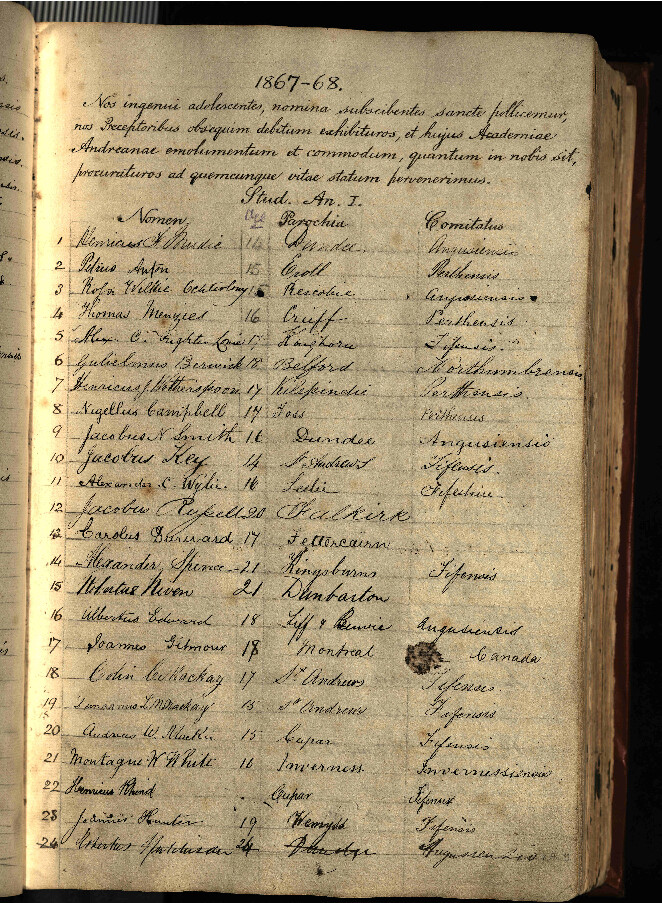 1867-68.
Nos ingenui adolescentes, nomina subscibentes sancte pollicemur,
nos Preceptoribus obsequium debitum exhibituros, et hujus Academiae
Andreanae emolumentum et commodum, quantum in nobis sit,
procurituros ad quemcunque vitae statum pervenerimus.
Stud. An. I.
Nomen Parochia Comitatus
1 Henricus Mudie 14 Dundee Angusiensis
2 Petrus Anton 15 Eroll Perthensis
3 Wilkie Ochterlony 15 Rescobie Angusiensis
4 Thomas Menzies 16 Crieff Perthensis
5 Alex. C. 17 Kinghorn Fifensis
6 Gulielmus Berwick 18 Belford Northumbrensis
7 Henricus J Wotherspoon 17 Kilspindie Perthensis
8 Nigellus Campbell 17 Foss Perthensis
9 Jacobus N Smith 16 Dundee Angusiensis
10 Jacobus Key 14 St Andrews Fifensis
11 Alexander C. Wylie 16 Leslie Fifeshire
12 Jacobus Russell 20 Falkirk
13 Carolus Durward 17 Fettercairn
14 Alexander Spence 21 Kingsbarns Fifensis
15 Niven 21 Dunbarton
16 Albertus Edward 18 Liff & Benvie Angusiensis
17 Joannes Gilmour 18 Montreal Canada
18 Colin Mackay 17 St Andrews Fifensis
19 Mackay 15 St Andrews Fifensis
20 Andreas W. 15 Cupar Fifensis
21 Montague W White 16 Inverness Invernessiensis
22 Henricus Rhind Cupar Fifensis
23 Joannis Hunter 19 Wemyss Fifensis
24 Hutchison 24 Dundee